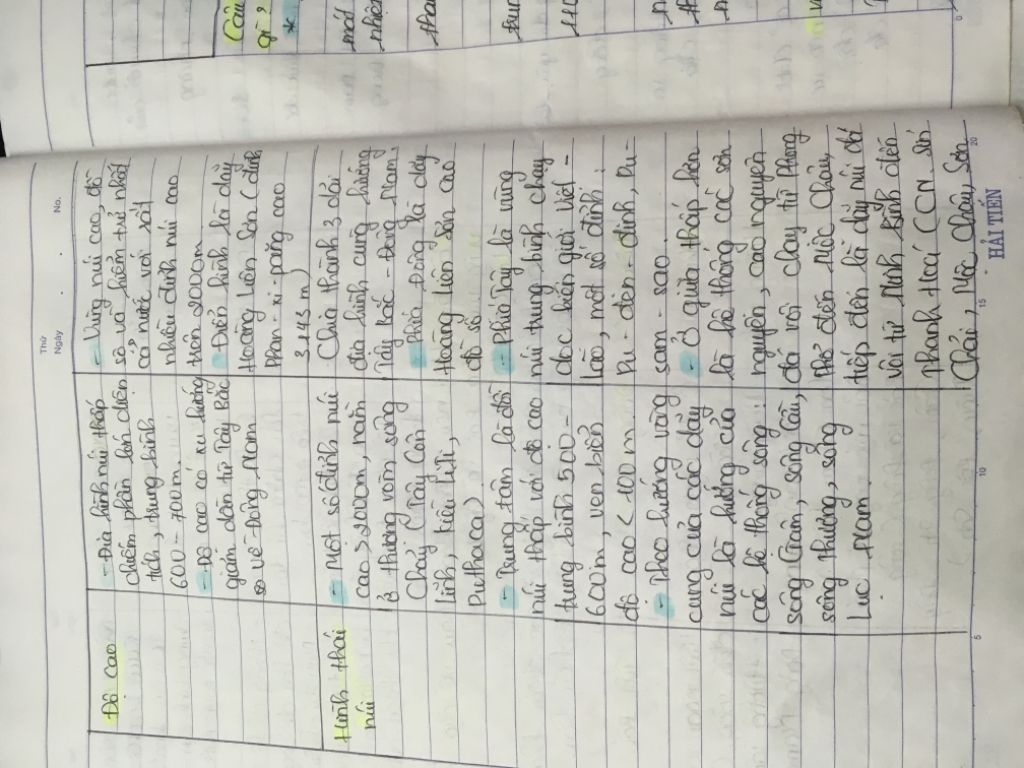 Thứ
Ngày
No.
Độ cao
- Địa hình núi thấp
chiếm phần lớn diện
tích, trung bình
600 - 700 m
- Độ cao có xu hướng
giảm dần từ Tây Bắc
về Đông Nam
- Vùng núi cao, đồ
sộ và hiểm trở nhất
cả nước với rất
nhiều đỉnh núi cao
trên 2000m
- Điển hình là dãy
Hoàng Liên Sơn (đỉnh
Phan - xi - păng cao
3143 m)
Hình thái
núi
- Một số đỉnh núi
cao > 2000m, nằm
ở thượng nguồn sông
Chảy (Tây Côn
Lĩnh, Kiều Liêu Ti,
Puthaca)
- Trung tâm là đồi
núi thấp với độ cao
trung bình 500 -
600m, ven biển
độ cao < 100 m.
- Theo hướng vòng
cung của các dãy
núi là hướng của
các hệ thống sông:
sông Gâm, sông Cầu,
sông Thương, sông
Lục Nam.
Chia thành 3 dải
địa hình cùng hướng
Tây Bắc - Đông Nam.
- Phía Đông là dãy
Hoàng Liên Sơn cao
đồ sộ.
- Phía Tây là vùng
núi trung bình chạy
dọc biên giới Việt -
Lào, một số đỉnh:
Pu - đen - đinh, Pu -
sam - sao.
- Ở giữa thấp hơn
là hệ thống các sơn
nguyên, cao nguyên
đá vôi chạy từ Phong
Thổ đến Mộc Châu,
tiếp đến là dãy núi đá
vôi từ Ninh Bình đến
Thanh Hoá (CN. Sín
Chải, Mộc Châu, Sơn
5
10
15
20
HẢI TIẾN
Câu
gì?
*